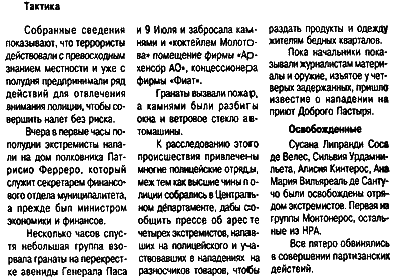 Тактика
Собранные сведения
показывают, что террористы
действовали с превосходным
знанием местности и уже с
полудня предпринимали ряд
действий для отвлечения
внимания полиции, чтобы со-
вершить налет без риска.
Вчера в первые часы по-
полудни экстремисты напа-
ли на дом полковника Пат-
рисио Ферреро, который
служит секретарем финансо-
вого отдела муниципалитета,
а прежде был министром
экономики и финансов.
Несколько часов спус-
тя небольшая группа взо-
рвала гранаты на перекрест-
ке авениды Генерала Паса
и 9 Июля и забросала кам-
нями и «коктейлем Молото-
ва» помещение фирмы «Ар-
хенсор АО», концессионера
фирмы «Фиат».
Гранаты вызвали пожар,
а камнями были разбиты
окна и ветровое стекло ав-
томашины.
К расследованию этого
происшествия привлечены
многие полицейские отряды,
меж тем как высшие чины по-
лиции собрались в Централь-
ном департаменте, дабы со-
общить прессе об аресте
четырех экстремистов, напав-
ших на полицейского и уча-
ствовавших в нападениях на
разносчиков товаров, чтобы
раздать продукты и одежду
жителям бедных кварталов.
Пока начальники пока-
зывали журналистам матери-
алы и оружие, изъятое у чет-
верых задержанных, пришло
известие о нападении на
приют Доброго Пастыря.
Освобожденные
Сусана Липранди Соса
де Велес, Сильвия Урдамни-
льета, Алисия Кинтерос, Ана
Мария Вильяреаль де Санту-
чо были освобождены отря-
дом экстремистов. Первая из
группы Монтонерос, осталь-
ные из НРА.
Все пятеро обвинялись
в совершении партизанских
действий.